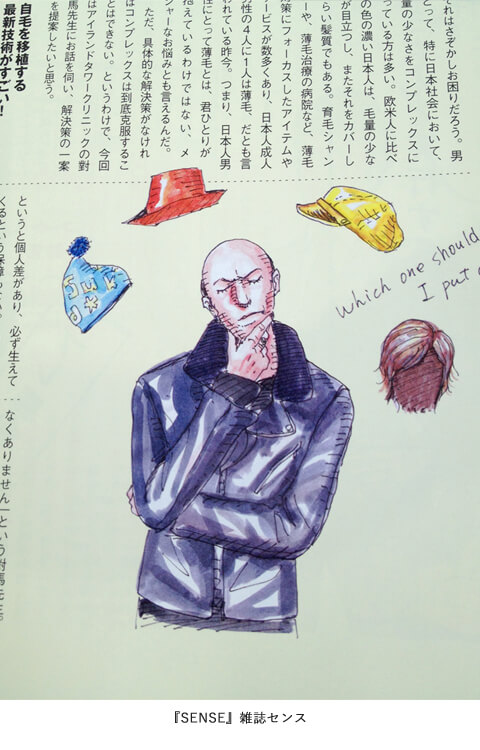 れはさぞかしお困りだろう。男
とって、特に日本社会において、
量の少なさをコンプレックスに
っている方は多い。欧米人に比べ
の色の濃い日本人は、毛量の少な
が目立つし、またそれをカバーし
らい髪質でもある。育毛シャン
ーや、薄毛治療の病院など、薄毛
策にフォーカスしたアイテムや
ービスが数多くあり、日本人成人
性の4人に1人は薄毛、だとも言
われている昨今。つまり、日本人男
性にとって薄毛とは、君ひとりが
抱えているわけではない、メ
ジャーなお悩みとも言えるんだ。
ただ、具体的な解決策がなけれ
ばコンプレックスは到底克服するこ
とはできない。というわけで、今回
はアイランドタワークリニックの對
馬先生にお話を伺い、解決策の一案
を提案したいと思う。
自毛を移植する
最新技術がすごい!
Which one should
I put
というと個人差があり、必ず生えて
くるという保障
なくありません」という對馬先生
『SENSE』雑誌センス